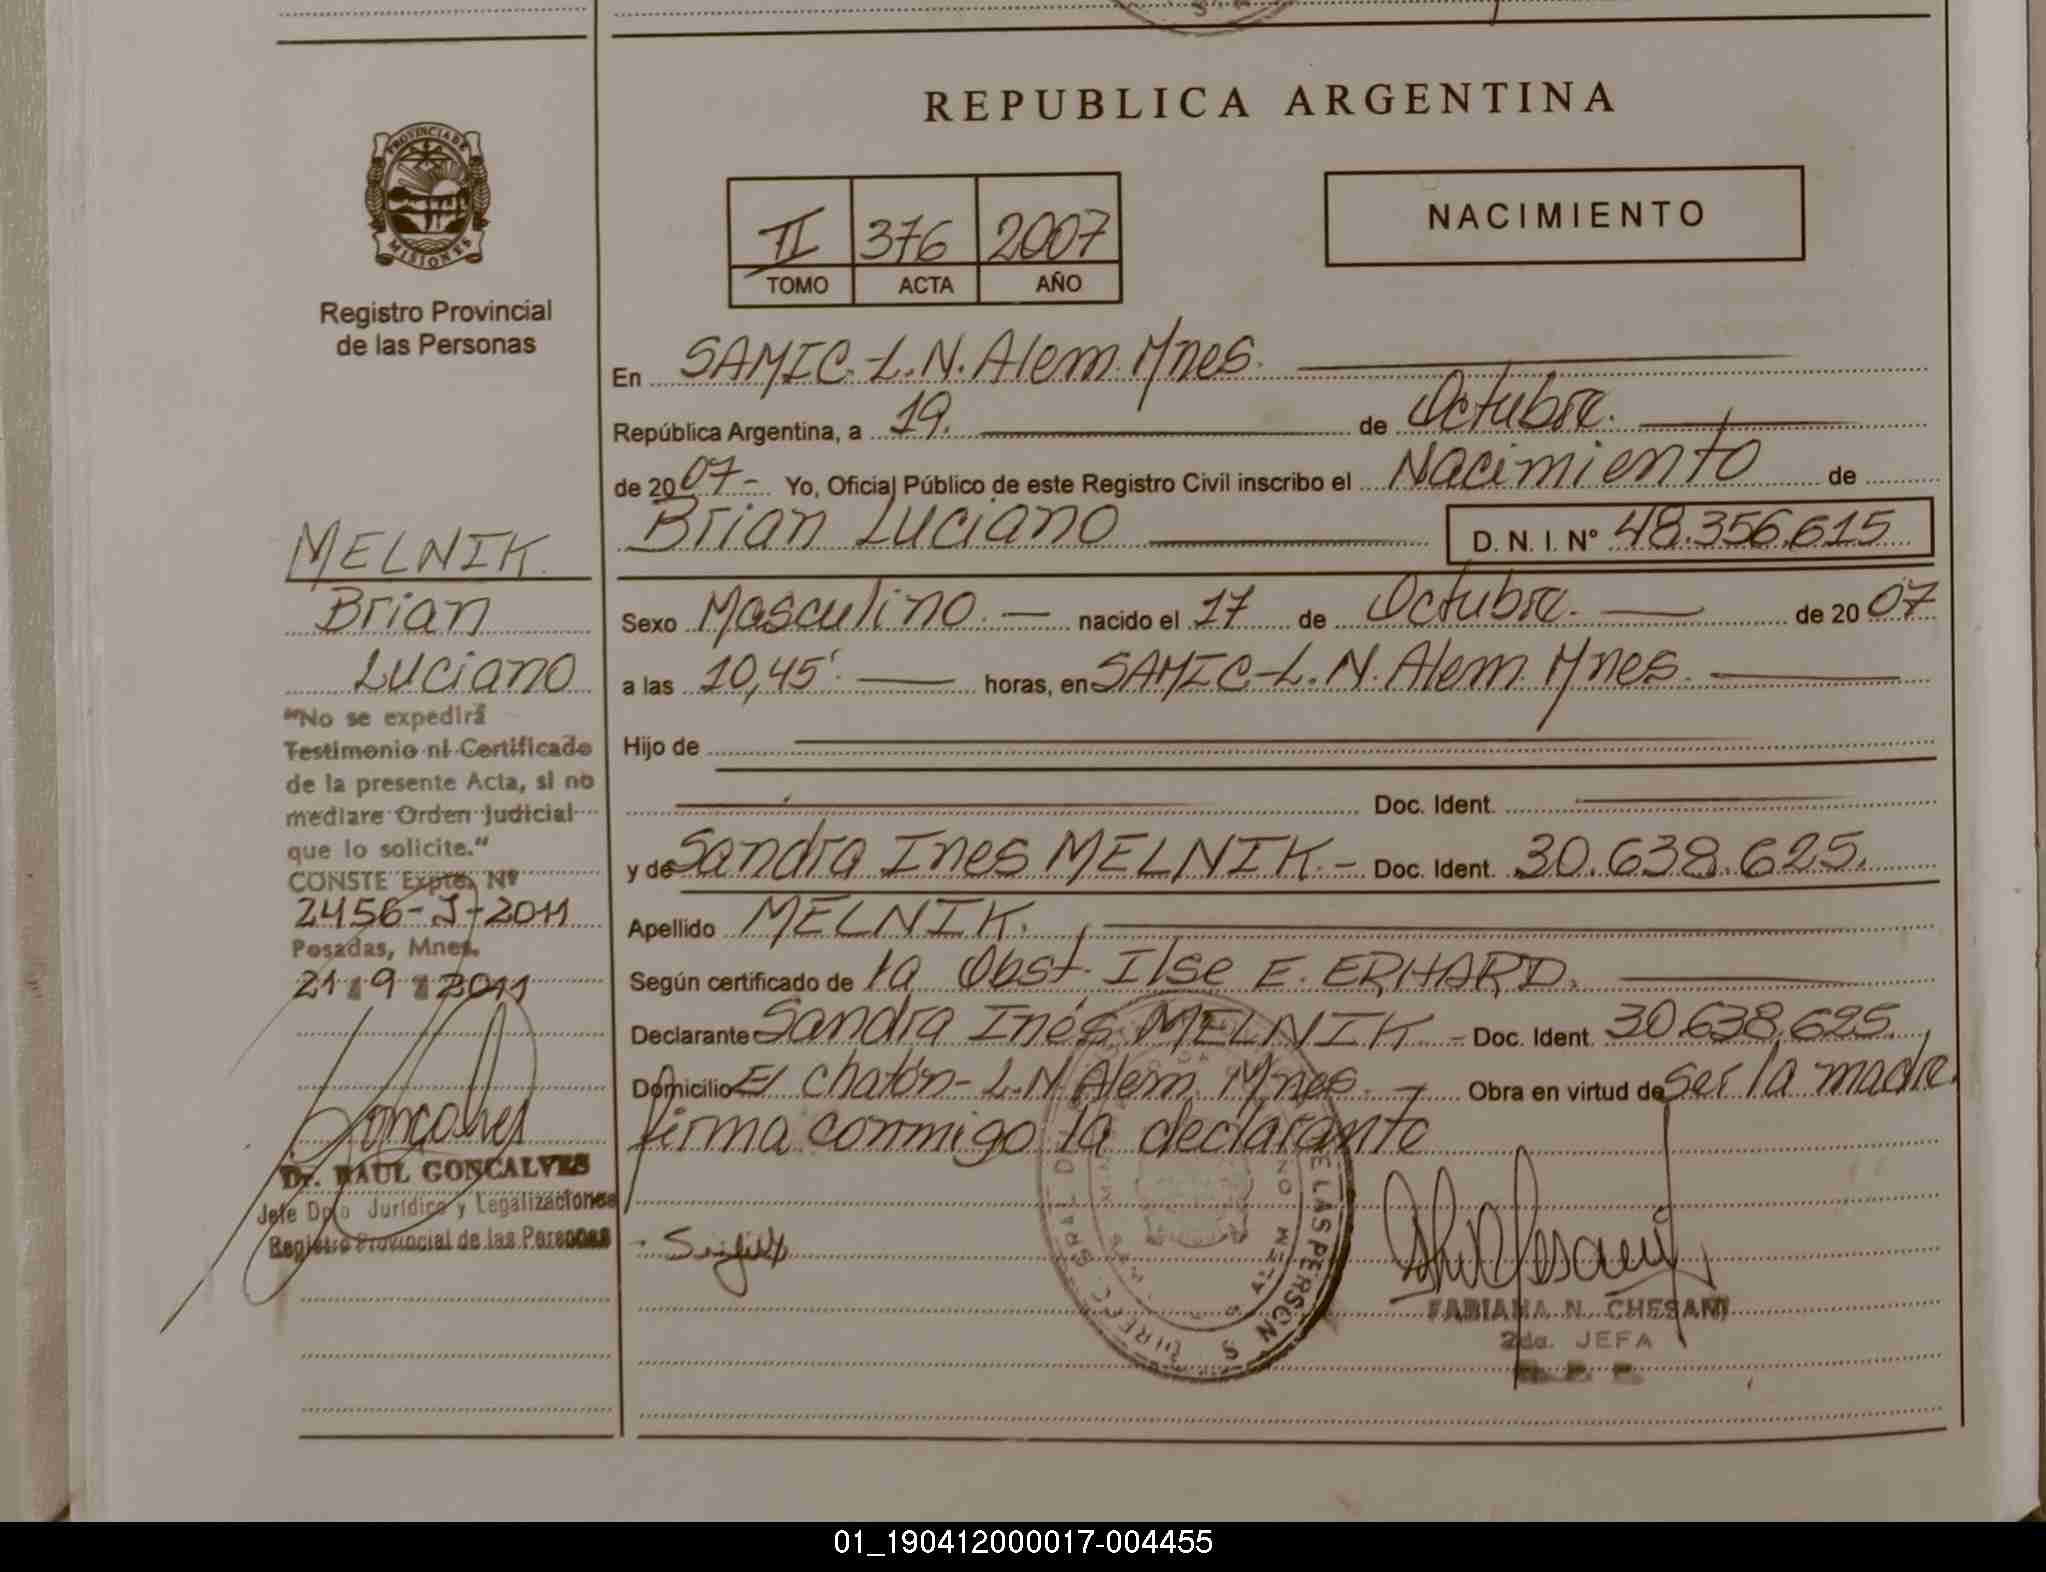 REPUBLICA ARGENTINA
PROVINCIA DE MISIONES
Registro Provincial
de las Personas
II 376 2007
TOMO ACTA AÑO
NACIMIENTO
En SAMIC-L.N.Alem.Mnes.
República Argentina, a 19. de Octubre.
de 2007- Yo, Oficial Público de este Registro Civil inscribo el Nacimiento de
Brian Luciano D. N. I. Nº 48.356.615
Sexo Masculino. nacido el 17 de Octubre. de 2007
a las 10,45' horas, en SAMIC-L.N.Alem.Mnes.
Hijo de
Doc. Ident.
y de Sandra Ines MELNIK.- Doc. Ident. 30.638.625.
Apellido MELNIK.
Según certificado de la Obst. Ilse E. ERHARD.
Declarante Sandra Inés MELNIK - Doc. Ident. 30.638.625.
Domicilio El Chatón-L.N.Alem. Mnes.- Obra en virtud de ser la madre.
firma conmigo la declarante
FABIANA N. CHESANI
2da. JEFA
MELNIK.
Brian
Luciano
"No se expedirá
Testimonio ni Certificado
de la presente Acta, si no
mediare Orden Judicial
que lo solicite."
CONSTE Expte. Nº
2456-J-2011
Posadas, Mnes.
21 9 2011
Goncalves
Dr. RAUL GONCALVES
Jefe Dpto Jurídico y Legalizaciones
Registro Provincial de las Personas
01_190412000017-004455